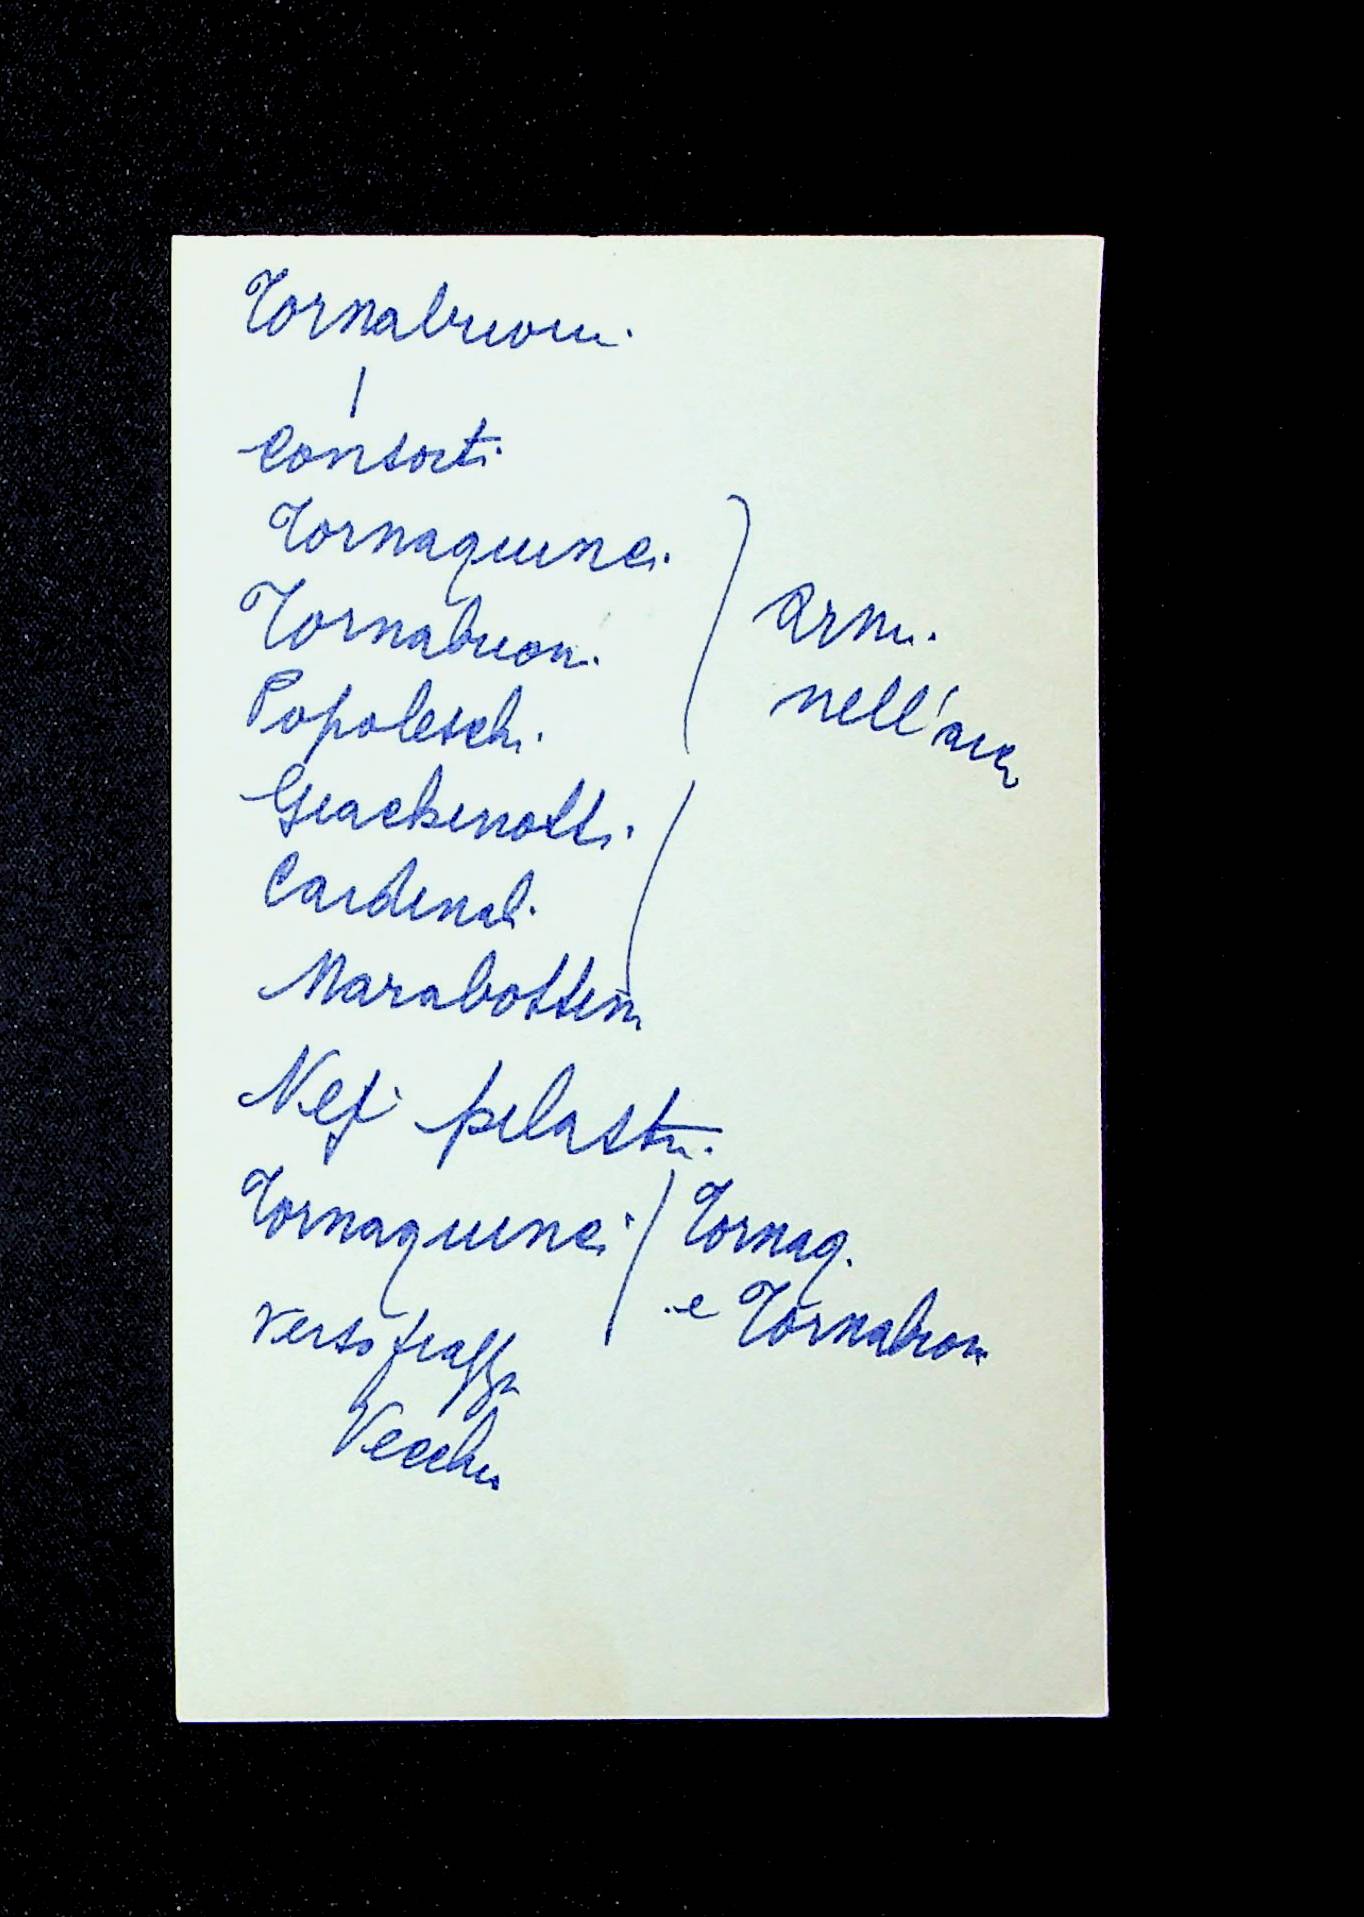 Tornabuoni
Consorti
Tornaquinci
Tornabuoni
Popoleschi
Giachinotti
Cardinali
Marabottini
armi
nell'arco
Nei pilastri
Tornaquinci
verso
Vecchio
Tornaq.
e Tornabuoni